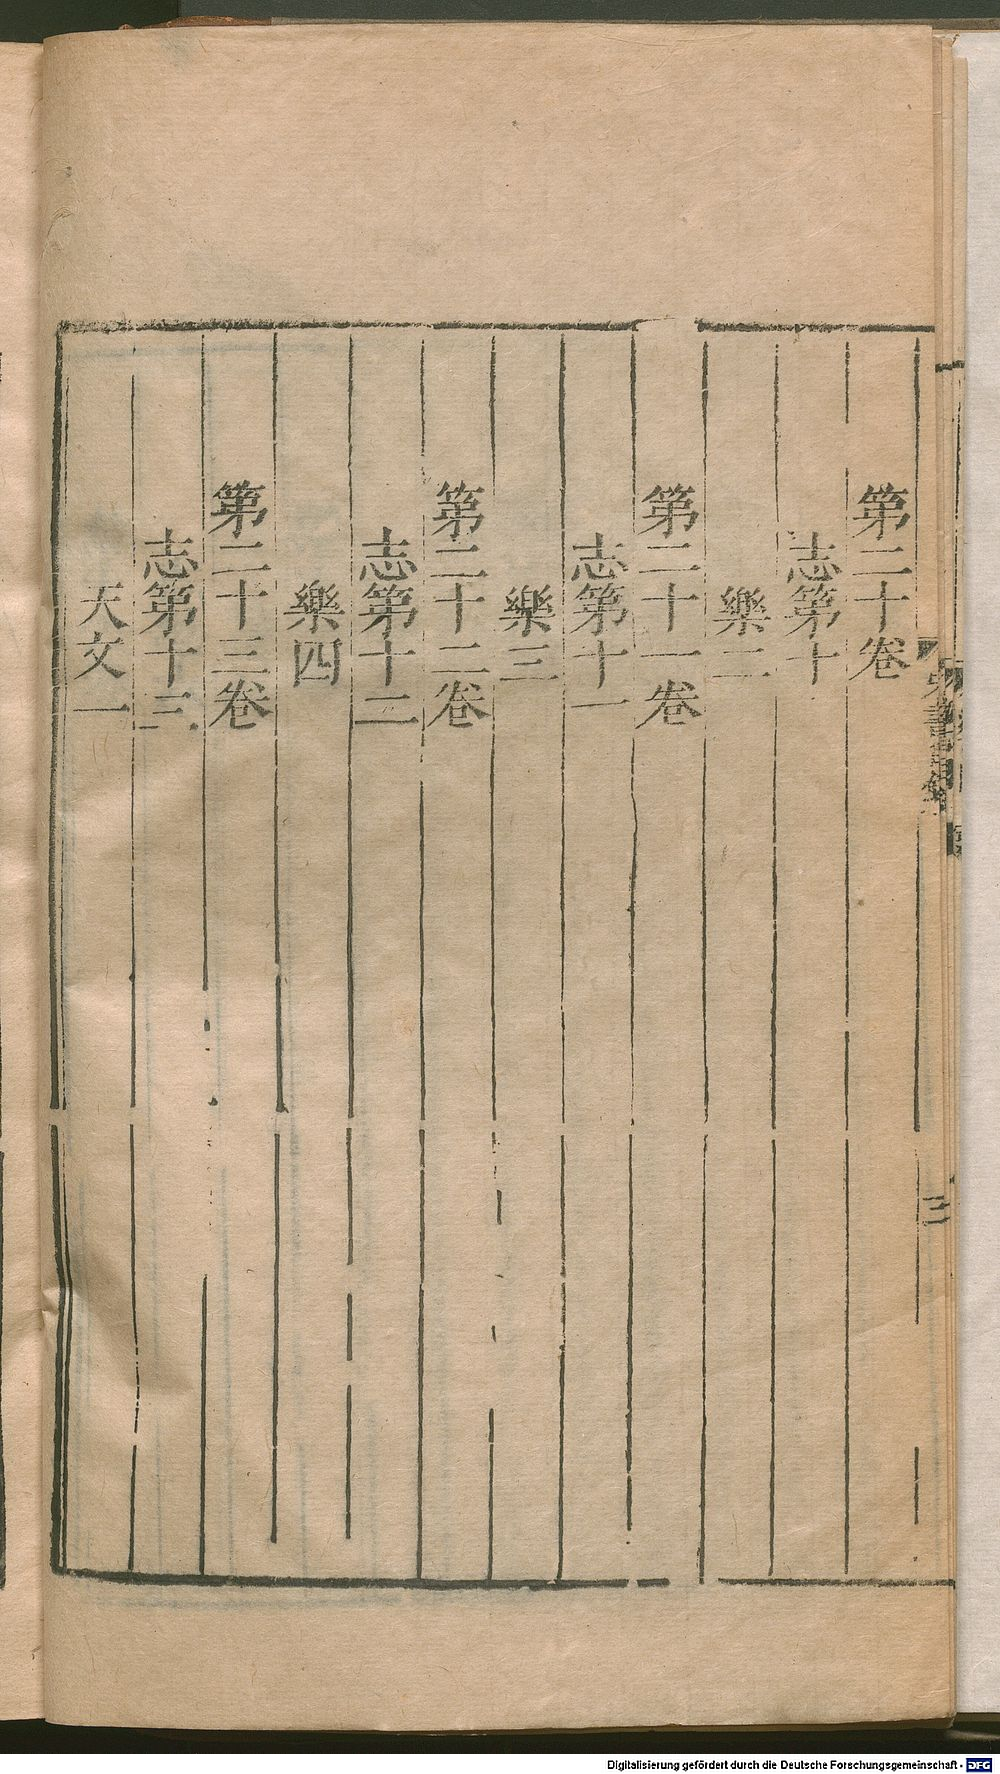 第二十卷
志第十
樂二
第二十一卷
志第十一
樂三
第二十二卷
志第十二
樂四
第二十三卷
志第十三
天文一
三
Digitalisierung gefördert durch die Deutsche Forschungsgemeinschaft - DFG